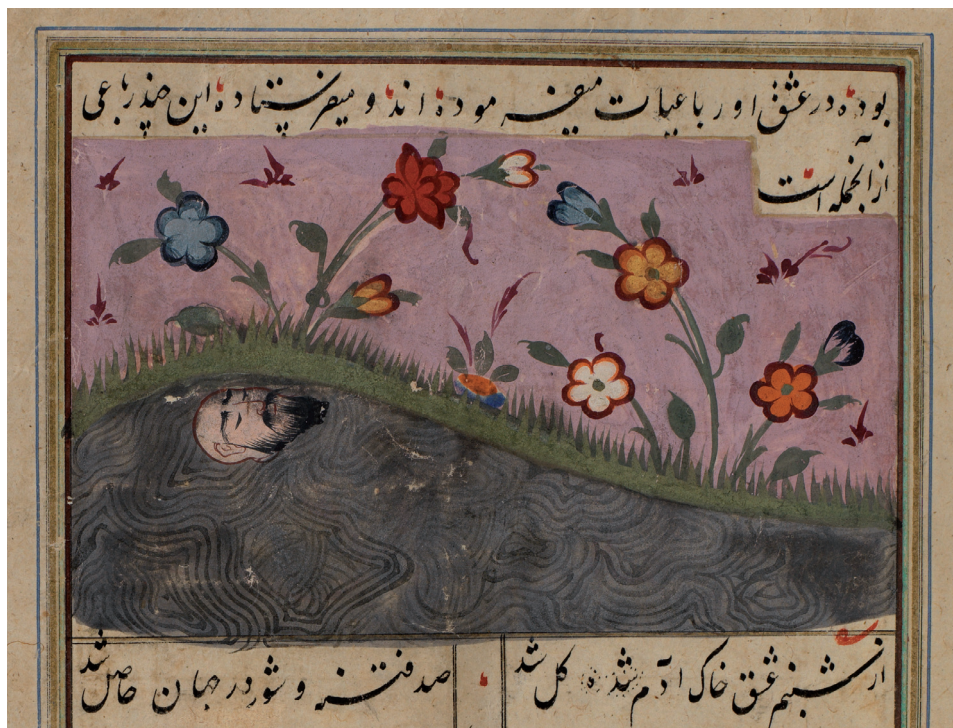 بوده در عشق او رباعیات میفرموده اند و میفرستاده این چند رباعی
از انجمله است
از شبنم عشق خاک آدم گل شد
صد فتنه و شور در جهان حاصل شد